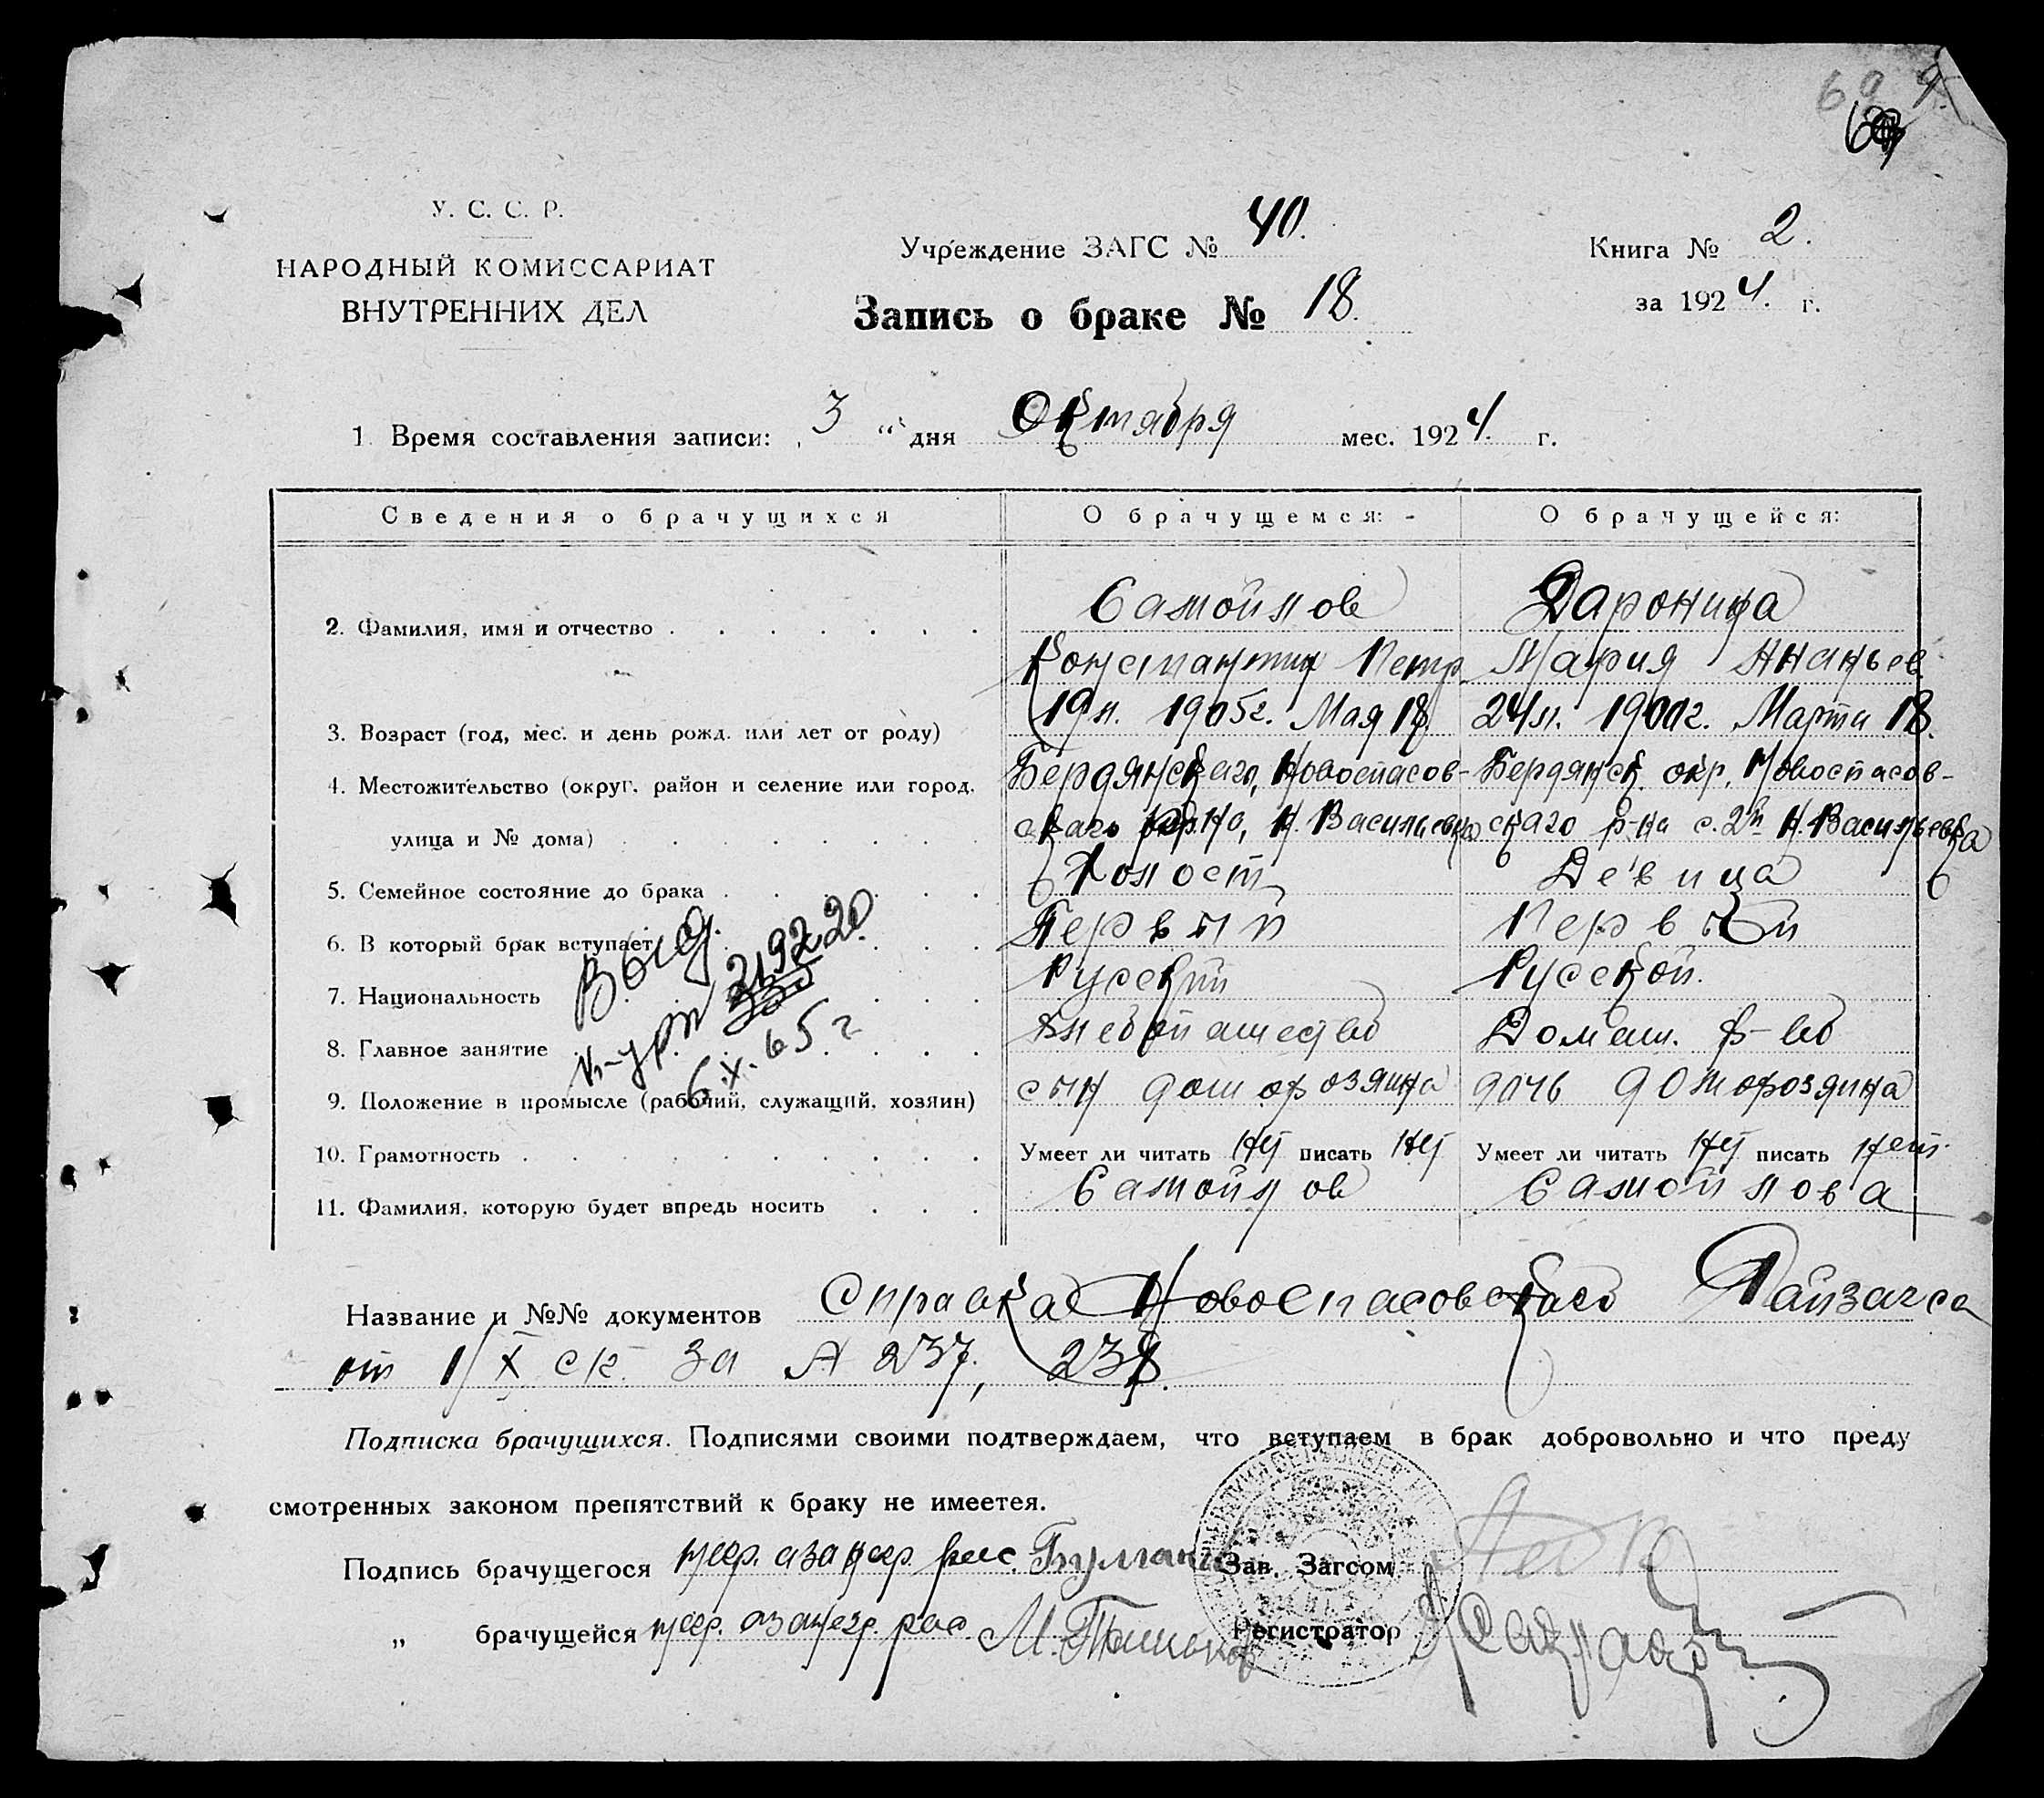 69
У. С. С. Р.
НАРОДНЫЙ КОМИССАРИАТ
ВНУТРЕННИХ ДЕЛ
Учреждение ЗАГС № 40.
Книга № 2.
за 1924. г.
Запись о браке № 18.
1. Время составления записи: 3 " дня Октября мес. 1924. г.
Сведения о брачущихся О брачущемся: - О брачущейся:
2. Фамилия, имя и отчество Самойлов Даронина
Константин Петр. Мария Ананьев.
3. Возраст (год, мес. и день рожд. или лет от роду) 19 л. 1905г. Мая 18 24 л. 1900г. Марта 18.
4. Местожительство (округ, район и селение или город, Бердянскаго, Новоспасов- Бердянск. окр. Новоспасов-
улица и № дома) скаго р-на, Н. Васильевка скаго р-на с. 2й Н. Васильевка
5. Семейное состояние до брака Холост Девица
6. В который брак вступает Первый Первый
7. Национальность Русский Русской.
8. Главное занятие Хлебопашество Домаш. х-во
9. Положение в промысле (рабочий, служащий, хозяин) сын домохозяина дочь домохозяина
10. Грамотность Умеет ли читать нет писать нет Умеет ли читать нет писать нет.
11. Фамилия, которую будет впредь носить Самойлов Самойлова
Выд.
219220
6.X.65 г
Название и №№ документов Справка Новоспасовскаго Райзагса
от 1/X с/г. за № 237, 238.
Подписка брачущихся. Подписями своими подтверждаем, что вступаем в брак добровольно и что преду
смотренных законом препятствий к браку не имеется.
Подпись брачущегося негр. за негр. рас.
Зав. Загсом
" брачущейся негр. за негр. рас.
Регистратор